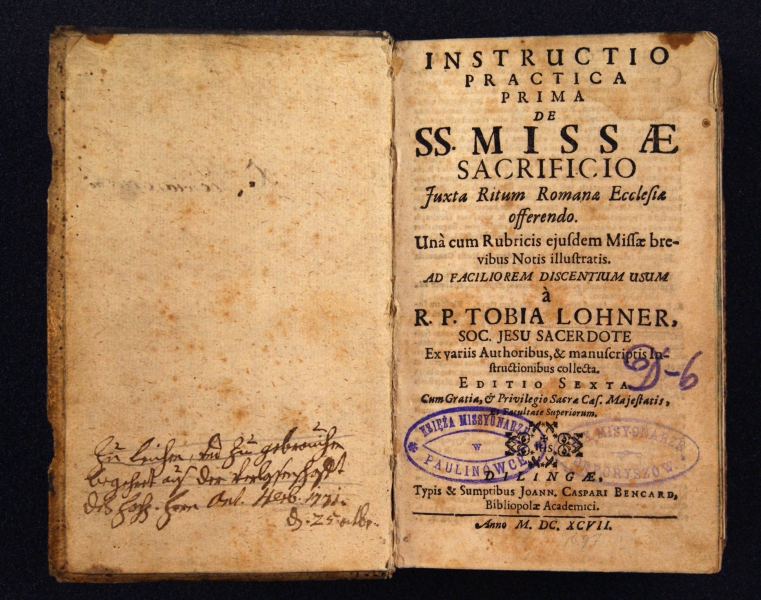 Zu leichen, und zu gebrauchen
begehrt aus der verlassenschafft
des hoch. Herrn Ant. 1731.
d. 25 octbr.
INSTRUCTIO
PRACTICA
PRIMA
DE
SS. MISSÆ
SACRIFICIO
Juxta Ritum Romanæ Ecclesiæ
offerendo.
Unà cum Rubricis ejuſdem Miſſæ bre-
vibus Notis illuſtratis.
AD FACILIOREM DISCENTIUM USUM
à
R. P. TOBIA LOHNER,
SOC. JESU SACERDOTE
Ex variis Authoribus, & manuſcriptis In-
ſtructionibus collecta.
EDITIO SEXTA
D-6
Cum Gratia, & Privilegio Sacræ Cæſ. Majeſtatis,
Et Facultate Superiorum.
KSIĘŻA MISSYONARZE
W
PAULINÓWCE
MISYONARZE
DILINGÆ,
Typis & Sumptibus JOANN. CASPARI BENCARD,
Bibliopolæ Academici.
Anno M. DC. XCVII.